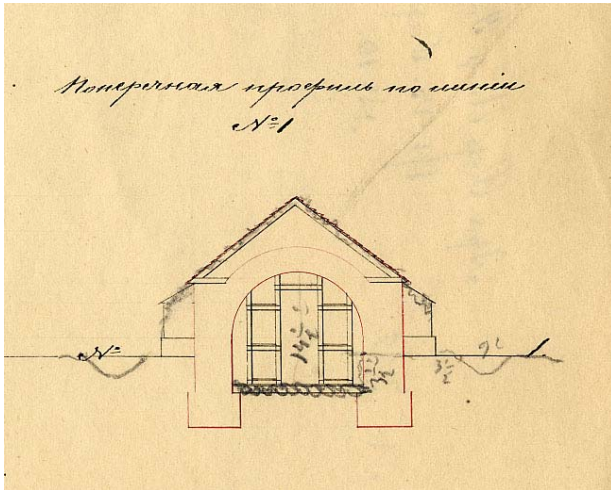 Поперечная профиль по линии
№ 1
14 1/2
3 1/2
№ 1.
3 1/2
9